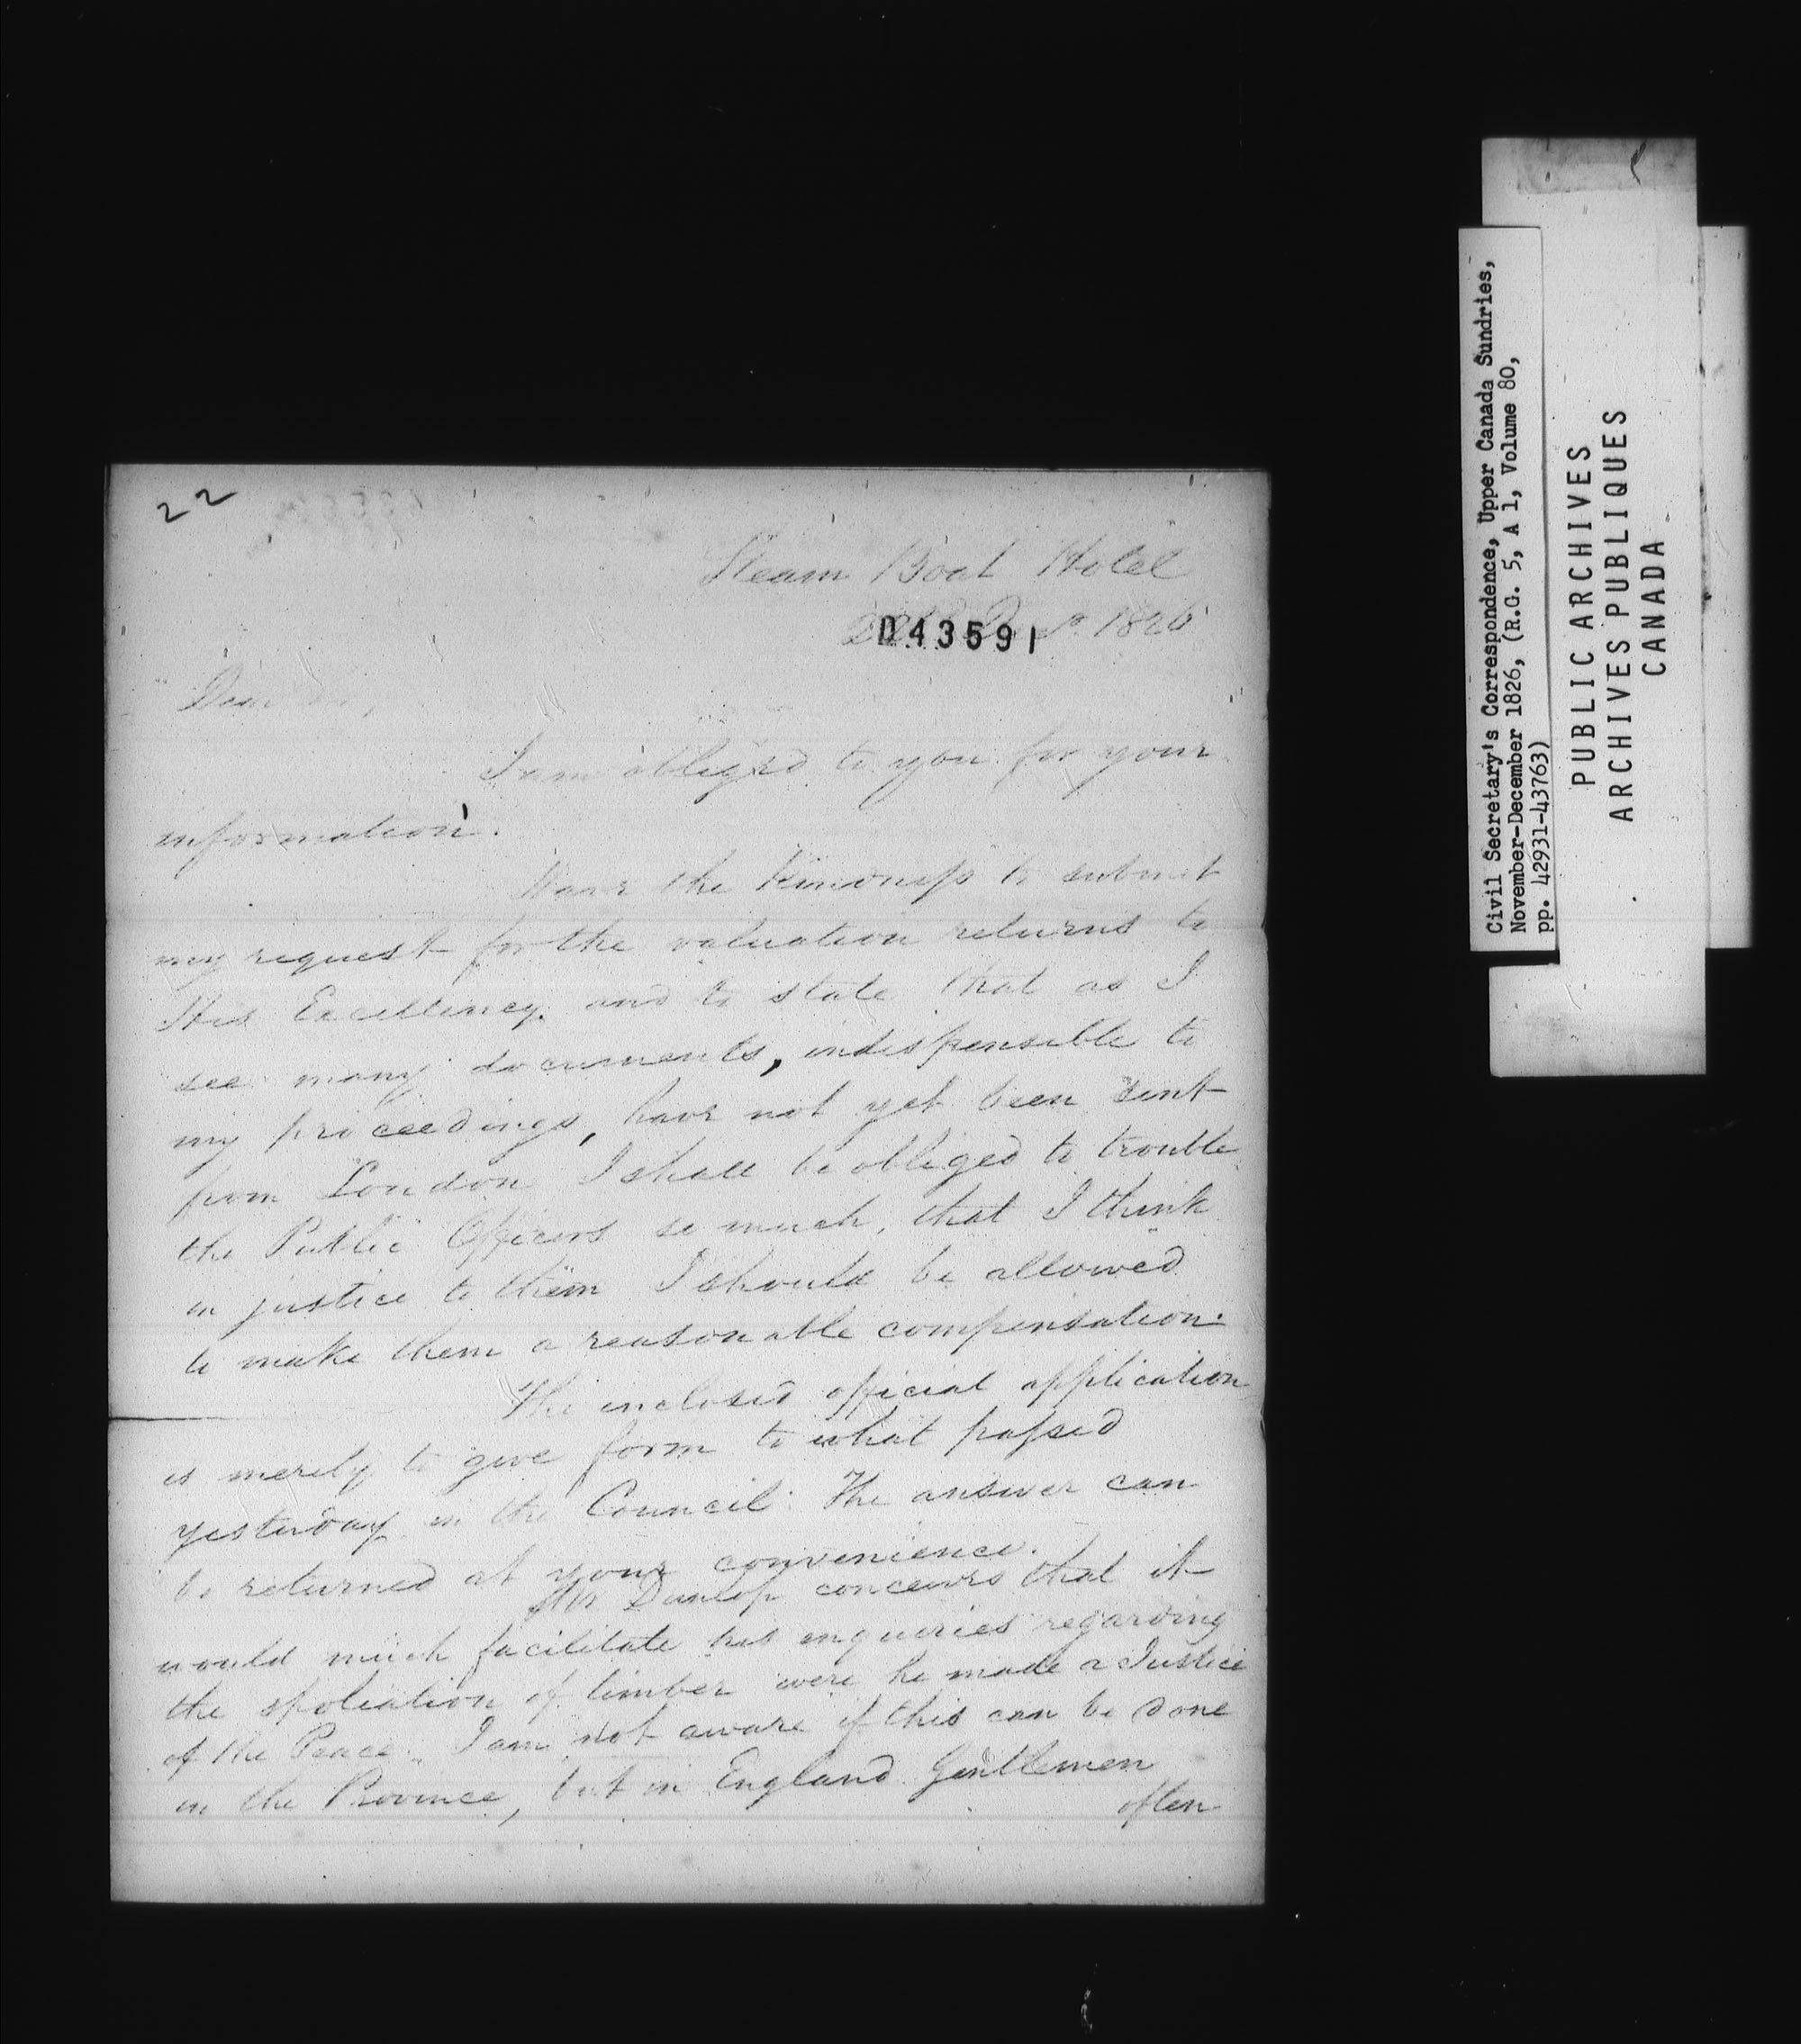 22
Steam Boat Hotel
Decr. 1826
043591
Dear Sir,
I am obliged to you for your
information.
Have the kindness to submit
my request for the valuation returns to
His Excellency. and to state that as I
see many documents, indispensible to
my proceedings, have not yet been sent
from London I shall be obliged to trouble
the Public Officers so much, that I think
in justice to them I should be allowed
to make them a reasonable compensation.
The inclosed official application
is merely to give form to what passed
yesterday in the Council. The answer can
be returned at your convenience.
Mr Dunlop conceives that it
would much facilitate his enquiries regarding
the spoliation of timber were he made a Justice
of the Peace. I am not aware if this can be done
in the Province, but in England Gentlemen
often
Civil Secretary's Correspondence, Upper Canada Sundries,
November-December 1826, (R.G. 5, A 1, Volume 80,
pp. 42931-43763)
PUBLIC ARCHIVES
ARCHIVES PUBLIQUES
CANADA